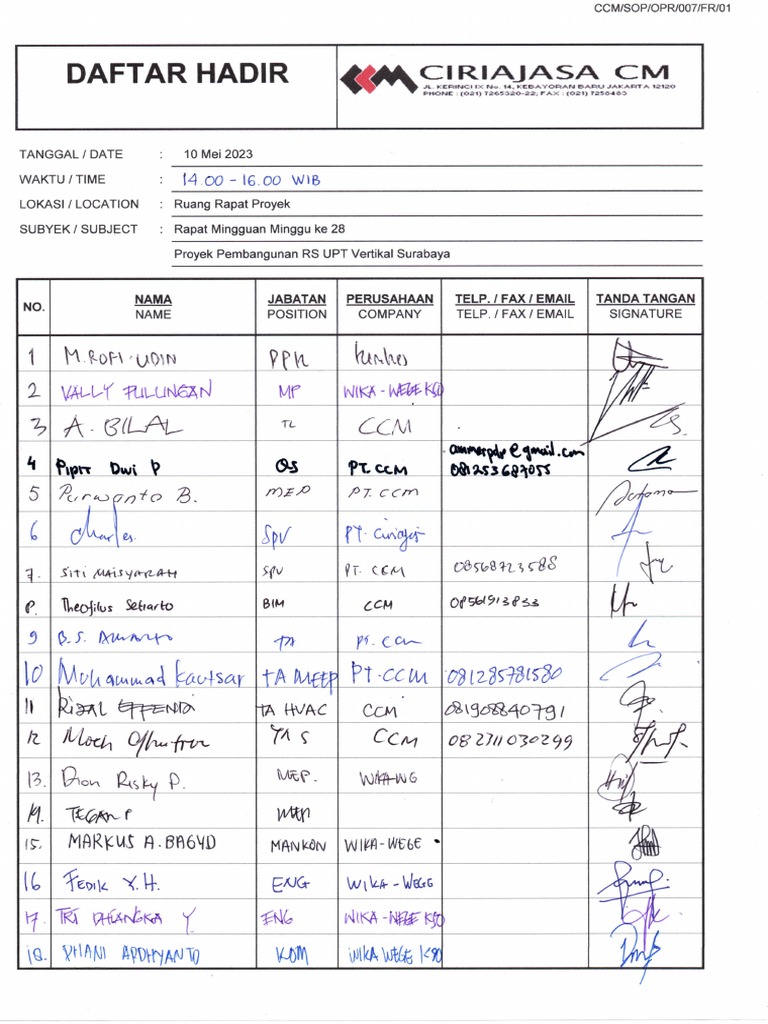 CCM/SOP/OPR/007/FR/01
DAFTAR HADIR
CIRIAJASA CM
JL. KERINCI IX No. 14, KEBAYORAN BARU JAKARTA 12120
PHONE : (021) 7265320-22; FAX : (021) 7256463
TANGGAL / DATE : 10 Mei 2023
WAKTU / TIME : 14.00 - 16.00 WIB
LOKASI / LOCATION : Ruang Rapat Proyek
SUBYEK / SUBJECT : Rapat Mingguan Minggu ke 28
Proyek Pembangunan RS UPT Vertikal Surabaya
NO. NAMA JABATAN PERUSAHAAN TELP. / FAX / EMAIL TANDA TANGAN
NAME POSITION COMPANY TELP. / FAX / EMAIL SIGNATURE
1 M. ROFI-UDIN PPK
2 VALLY PULUNGAN MP WIKA - WEGE KSO
3 A. BILAL TL CCM
4 Pipit Dwi P QS PT. CCM ammarpdp@gmail.com
081253687055
5 Purwanto B. MEP PT. CCM
6 Charles SPV PT. Ciriajasa
7. SITI MAISYARAH SPV PT. CCM 08568723588
8. Theofilus Setiarto BIM CCM 08561913833
9 B.S. TA PT. CCM
10 Mohammad Kautsar TA MEEP PT. CCM 081285781580
11 RIZAL EFFENDI TA HVAC CCM 081908840791
12 Moch CCM 082711030299
13. Dion Risky P. MEP. WIKA-WG
14. TEGAR P MEP
15. MARKUS A. BAGYO MANKON WIKA-WEGE
16 FEDIK Y.H. ENG WIKA - WEGE
17. TRI DHIANGKA Y ENG WIKA - WEGE KSO
18. DHANI ARDHYANTO KOM WIKA WEGE KSO